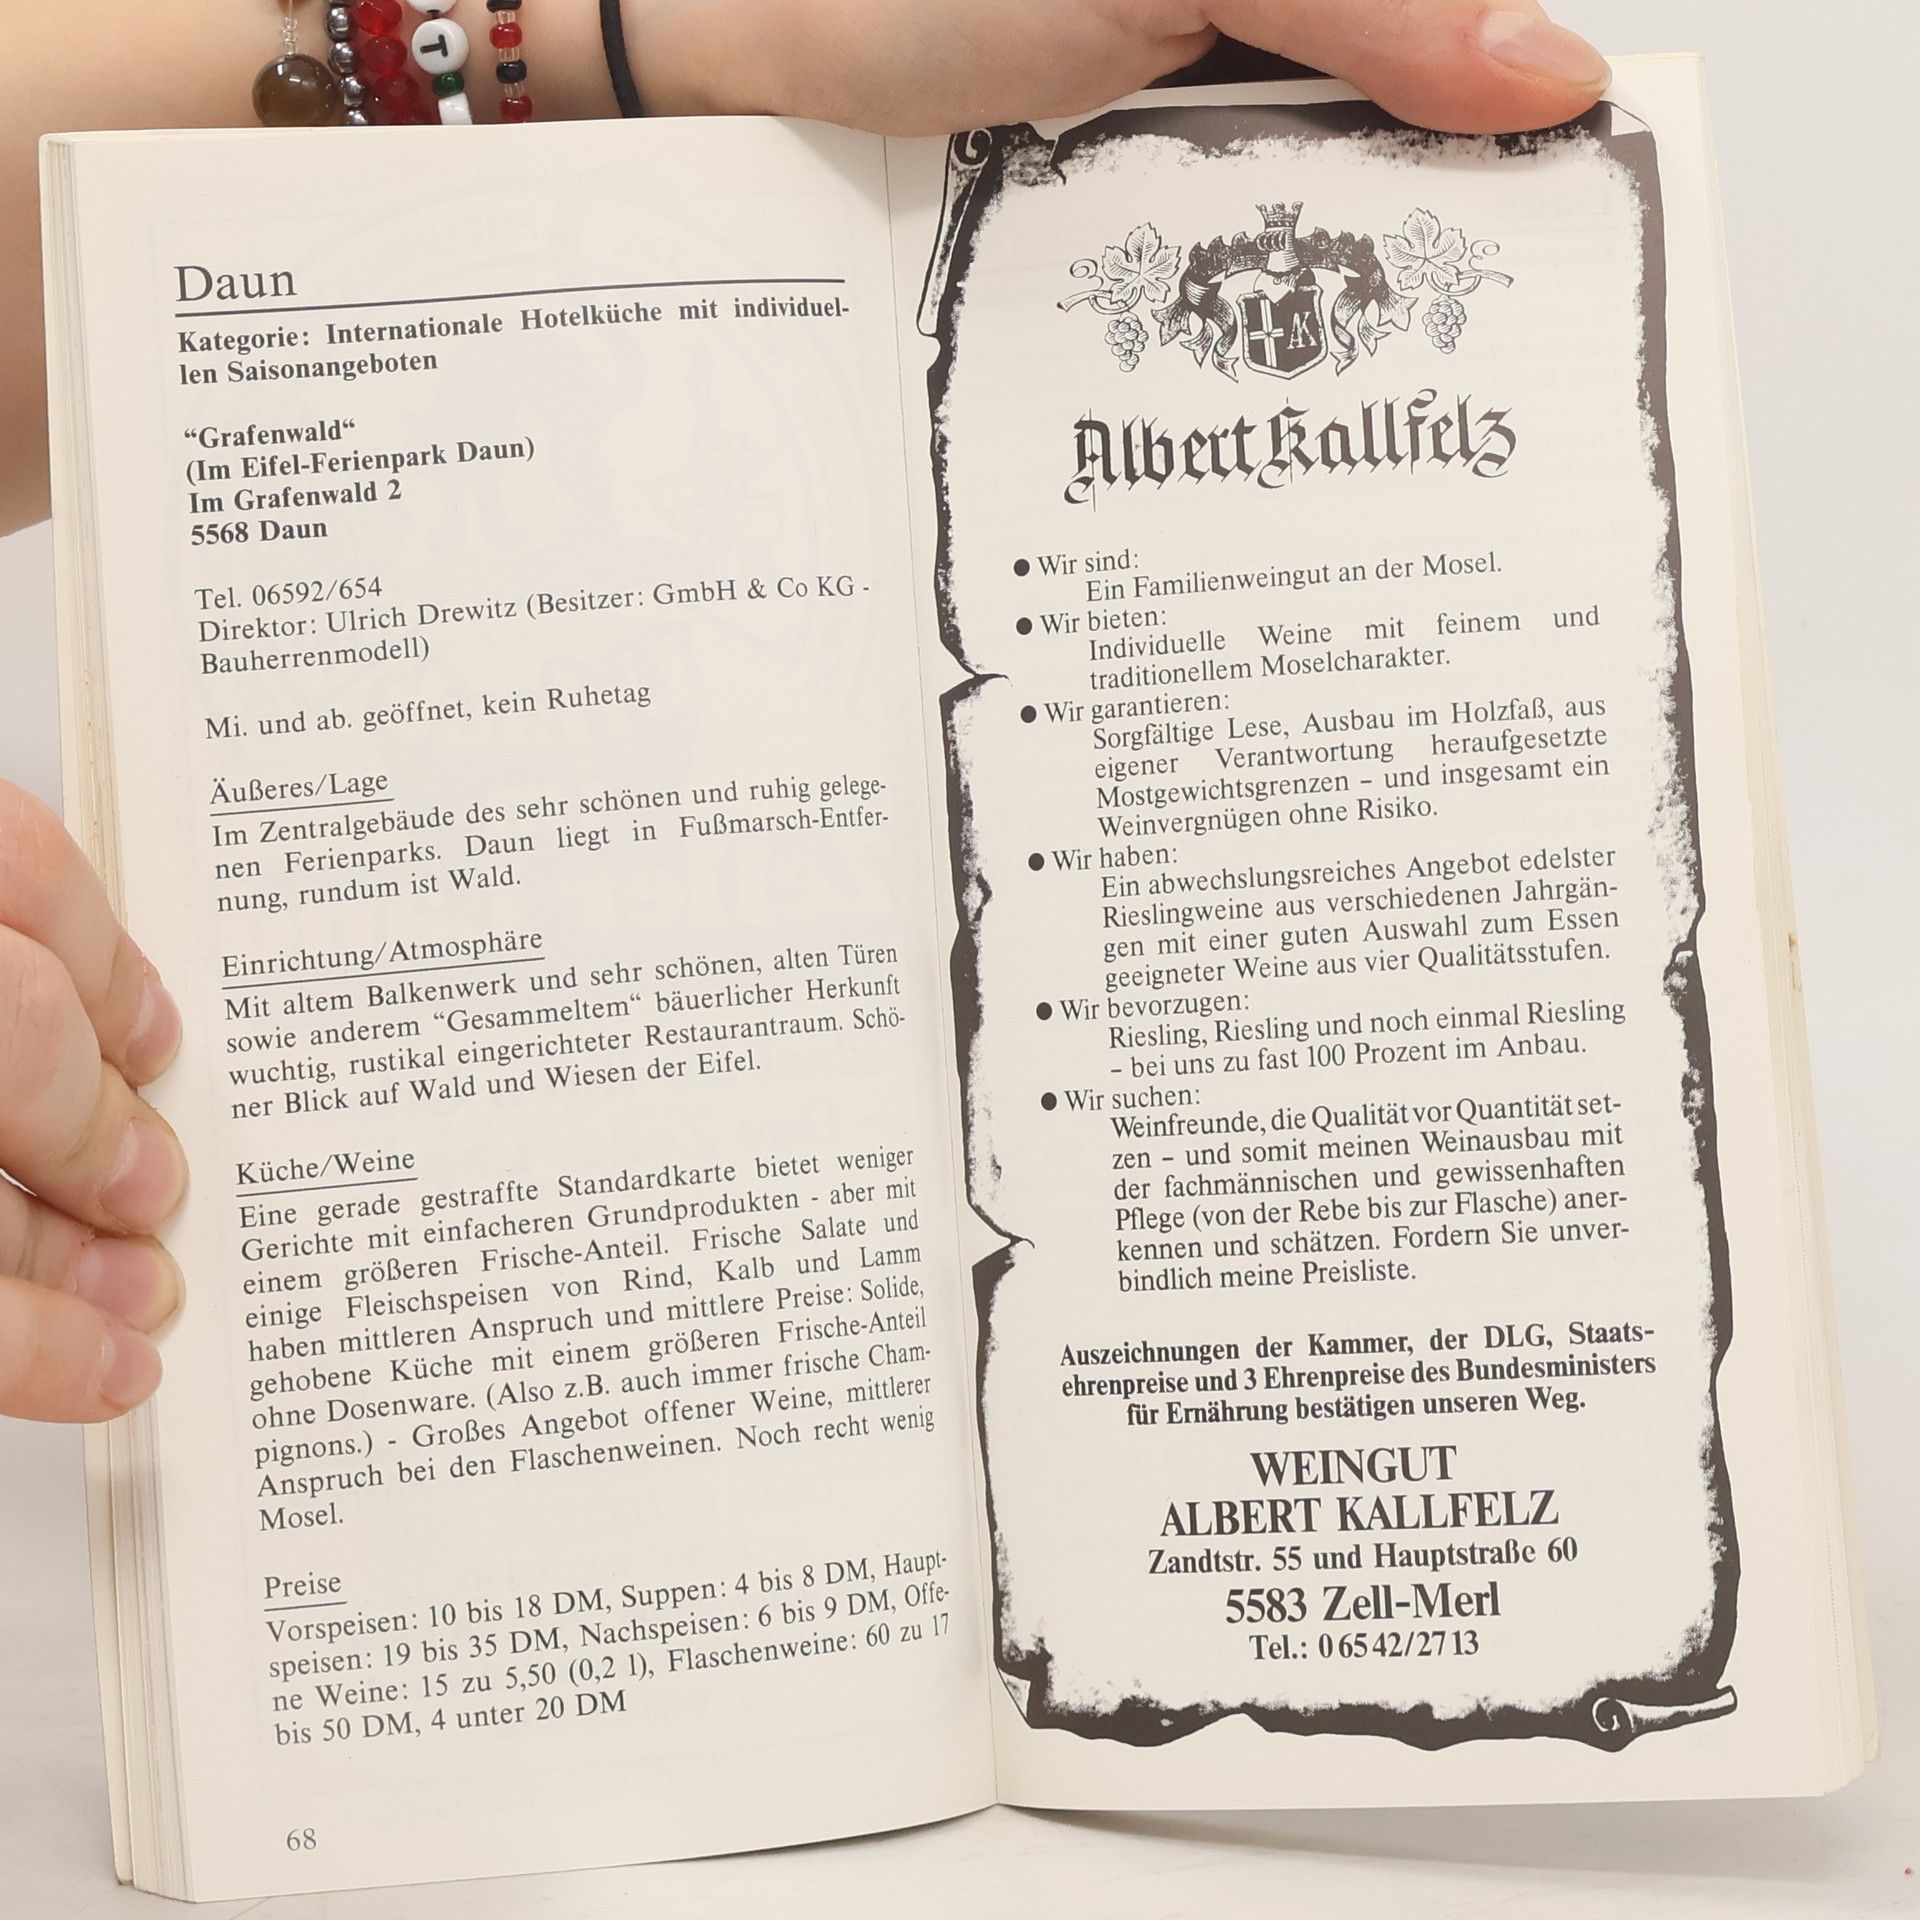 T
Daun
Kategorie: Internationale Hotelküche mit individuel-
len Saisonangeboten
“Grafenwald“
(Im Eifel-Ferienpark Daun)
Im Grafenwald 2
5568 Daun
Tel. 06592/654
Direktor: Ulrich Drewitz (Besitzer: GmbH & Co KG -
Bauherrenmodell)
Mi. und ab. geöffnet, kein Ruhetag
Äußeres/Lage
Im Zentralgebäude des sehr schönen und ruhig gelege-
nen Ferienparks. Daun liegt in Fußmarsch-Entfer-
nung, rundum ist Wald.
Einrichtung/Atmosphäre
Mit altem Balkenwerk und sehr schönen, alten Türen
sowie anderem “Gesammeltem“ bäuerlicher Herkunft
wuchtig, rustikal eingerichteter Restaurantraum. Schö-
ner Blick auf Wald und Wiesen der Eifel.
Küche/Weine
Eine gerade gestraffte Standardkarte bietet weniger
Gerichte mit einfacheren Grundprodukten - aber mit
einem größeren Frische-Anteil. Frische Salate und
einige Fleischspeisen von Rind, Kalb und Lamm
haben mittleren Anspruch und mittlere Preise: Solide,
gehobene Küche mit einem größeren Frische-Anteil
ohne Dosenware. (Also z.B. auch immer frische Cham-
pignons.) - Großes Angebot offener Weine, mittlerer
Anspruch bei den Flaschenweinen. Noch recht wenig
Mosel.
Preise
Vorspeisen: 10 bis 18 DM, Suppen: 4 bis 8 DM, Haupt-
speisen: 19 bis 35 DM, Nachspeisen: 6 bis 9 DM, Offe-
ne Weine: 15 zu 5,50 (0,2 l), Flaschenweine: 60 zu 17
bis 50 DM, 4 unter 20 DM
68
AK
Albert Kallfelz
● Wir sind:
Ein Familienweingut an der Mosel.
● Wir bieten:
Individuelle Weine mit feinem und
traditionellem Moselcharakter.
● Wir garantieren:
Sorgfältige Lese, Ausbau im Holzfaß, aus
eigener Verantwortung heraufgesetzte
Mostgewichtsgrenzen – und insgesamt ein
Weinvergnügen ohne Risiko.
● Wir haben:
Ein abwechslungsreiches Angebot edelster
Rieslingweine aus verschiedenen Jahrgän-
gen mit einer guten Auswahl zum Essen
geeigneter Weine aus vier Qualitätsstufen.
● Wir bevorzugen:
Riesling, Riesling und noch einmal Riesling
– bei uns zu fast 100 Prozent im Anbau.
● Wir suchen:
Weinfreunde, die Qualität vor Quantität set-
zen – und somit meinen Weinausbau mit
der fachmännischen und gewissenhaften
Pflege (von der Rebe bis zur Flasche) aner-
kennen und schätzen. Fordern Sie unver-
bindlich meine Preisliste.
Auszeichnungen der Kammer, der DLG, Staats-
ehrenpreise und 3 Ehrenpreise des Bundesministers
für Ernährung bestätigen unseren Weg.
WEINGUT
ALBERT KALLFELZ
Zandtstr. 55 und Hauptstraße 60
5583 Zell-Merl
Tel.: 0 65 42/27 13